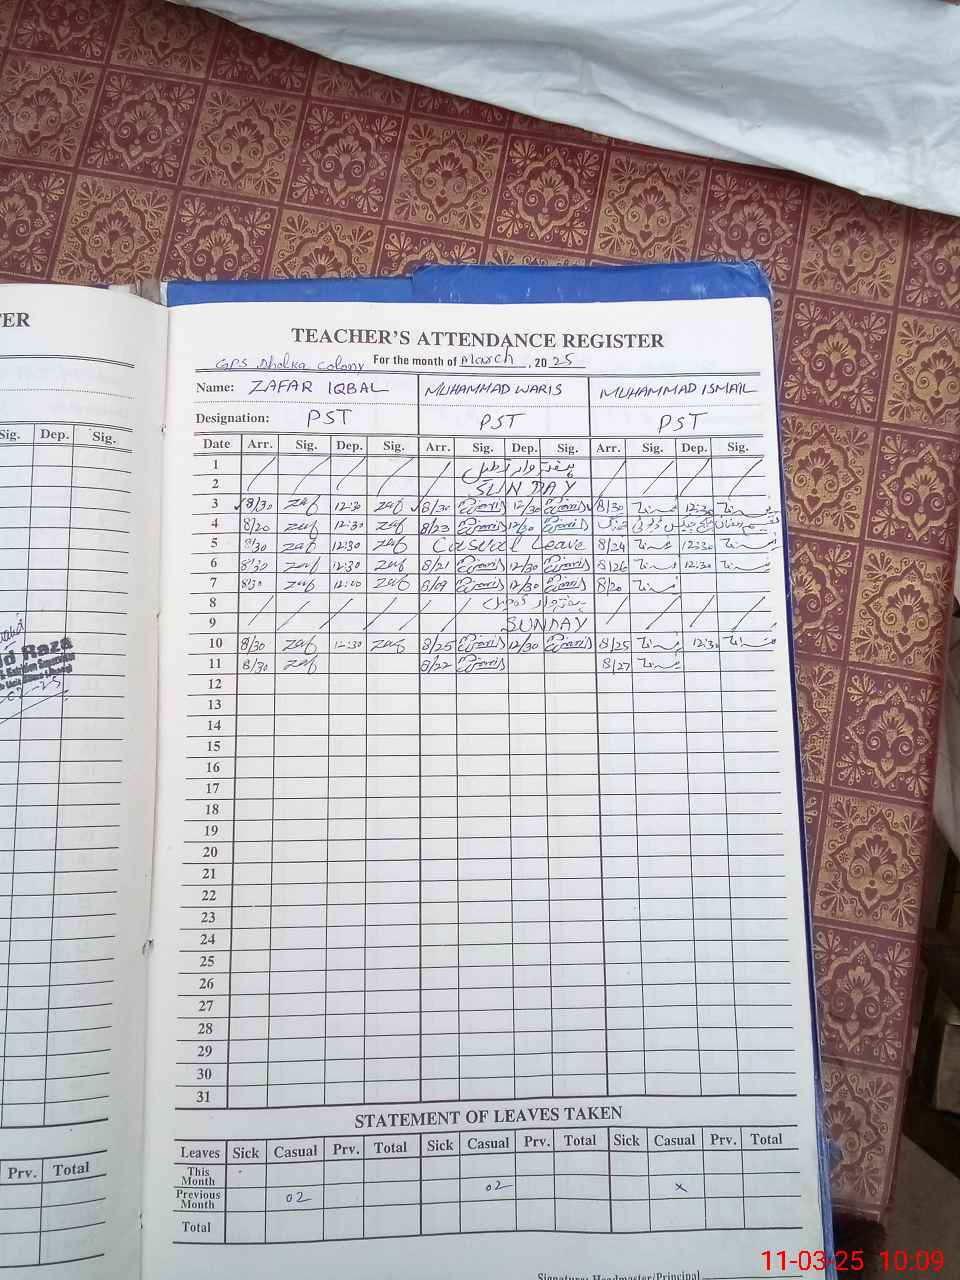 TER
TEACHER'S ATTENDANCE REGISTER
GPS Dholka Colony For the month of March, 2025
Name: ZAFAR IQBAL MUHAMMAD WARIS MUHAMMAD ISMAIL
Designation: PST PST PST
Sig. Dep. Sig.
Date Arr. Sig. Dep. Sig. Arr. Sig. Dep. Sig. Arr. Sig. Dep. Sig.
1 ہفتہ وار تعطیل
2 SUNDAY
3 8/30 12:30 8/30 12/30 8/30 12:30
4 8/20 12:30 8/23 12/30
5 8/30 12:30 Casual Leave 8/24 12:30
6 8/30 12:30 8/21 12/30 8/26 12:30
7 8/30 12:00 8/19 12/30 8/20
8 ہفتہ وار تعطیل
9 SUNDAY
10 8/30 12:30 8/25 12/30 8/25 12:30
11 8/30 8/22 8/27
12
13
14
15
16
17
18
19
20
21
22
23
24
25
26
27
28
29
30
31
STATEMENT OF LEAVES TAKEN
Leaves Sick Casual Prv. Total Sick Casual Prv. Total Sick Casual Prv. Total
This Month
Previous Month 02 02 x
Total
Prv. Total
Signature: Headmaster/Principal
d Raza
11-03-25 10:09